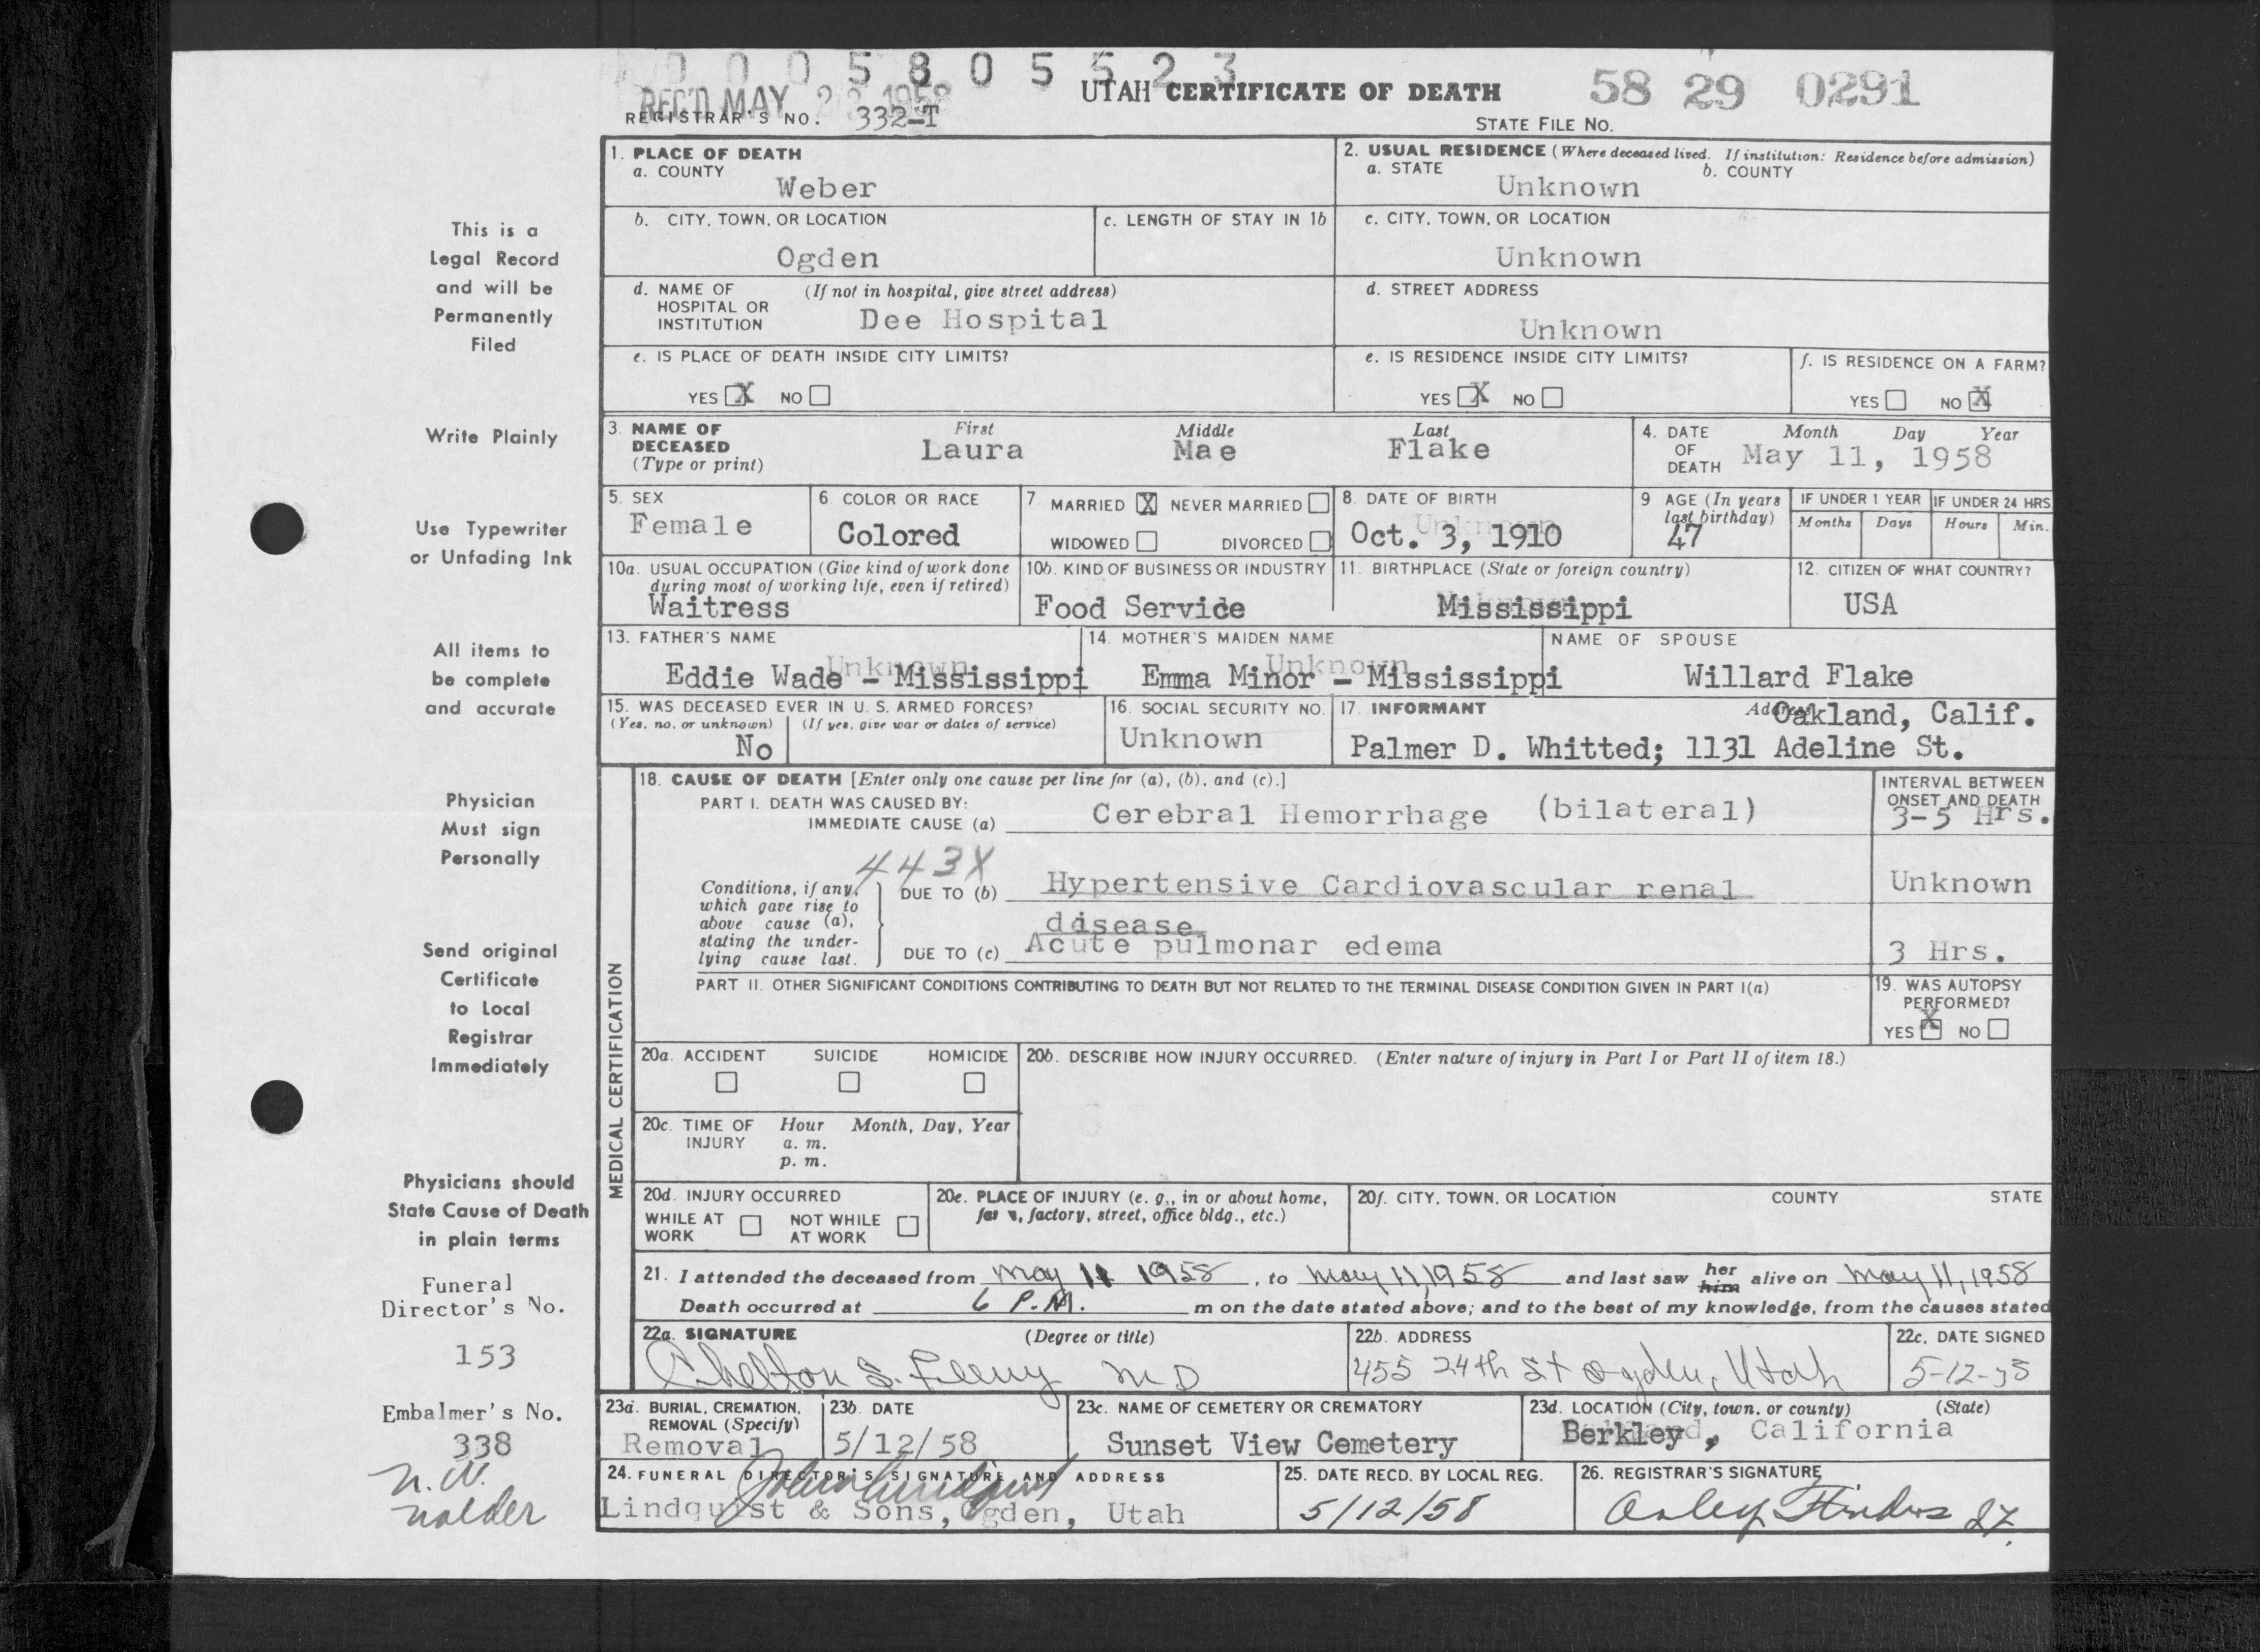 0 0 0 5 8 0 5 5 2 3
REC'D MAY 1958
UTAH CERTIFICATE OF DEATH
58 29 0291
REGISTRAR'S NO. 332-T
STATE FILE NO.
1. PLACE OF DEATH
a. COUNTY
Weber
2. USUAL RESIDENCE (Where deceased lived. If institution: Residence before admission)
a. STATE b. COUNTY
Unknown
b. CITY, TOWN, OR LOCATION
Ogden
c. LENGTH OF STAY IN 1b
c. CITY, TOWN, OR LOCATION
Unknown
d. NAME OF HOSPITAL OR INSTITUTION (If not in hospital, give street address)
Dee Hospital
d. STREET ADDRESS
Unknown
e. IS PLACE OF DEATH INSIDE CITY LIMITS?
YES X NO
e. IS RESIDENCE INSIDE CITY LIMITS?
YES X NO
f. IS RESIDENCE ON A FARM?
YES NO X
3. NAME OF DECEASED (Type or print)
First Middle Last
Laura Mae Flake
4. DATE OF DEATH
Month Day Year
May 11, 1958
5. SEX
Female
6. COLOR OR RACE
Colored
7 MARRIED X NEVER MARRIED
WIDOWED DIVORCED
8. DATE OF BIRTH
Unknown
Oct. 3, 1910
9 AGE (In years last birthday)
47
IF UNDER 1 YEAR
Months Days
IF UNDER 24 HRS
Hours Min.
10a. USUAL OCCUPATION (Give kind of work done during most of working life, even if retired)
Waitress
10b. KIND OF BUSINESS OR INDUSTRY
Food Service
11. BIRTHPLACE (State or foreign country)
Mississippi
12. CITIZEN OF WHAT COUNTRY?
USA
13. FATHER'S NAME
Unknown
Eddie Wade - Mississippi
14. MOTHER'S MAIDEN NAME
Unknown
Emma Minor - Mississippi
NAME OF SPOUSE
Willard Flake
15. WAS DECEASED EVER IN U. S. ARMED FORCES?
(Yes, no, or unknown) (If yes, give war or dates of service)
No
16. SOCIAL SECURITY NO.
Unknown
17. INFORMANT Address
Oakland, Calif.
Palmer D. Whitted; 1131 Adeline St.
MEDICAL CERTIFICATION
18. CAUSE OF DEATH [Enter only one cause per line for (a), (b), and (c).]
PART I. DEATH WAS CAUSED BY:
IMMEDIATE CAUSE (a) Cerebral Hemorrhage (bilateral)
INTERVAL BETWEEN ONSET AND DEATH
3-5 Hrs.
443X
Conditions, if any, which gave rise to above cause (a), stating the underlying cause last.
DUE TO (b) Hypertensive Cardiovascular renal
disease
Unknown
DUE TO (c) Acute pulmonar edema
3 Hrs.
PART II. OTHER SIGNIFICANT CONDITIONS CONTRIBUTING TO DEATH BUT NOT RELATED TO THE TERMINAL DISEASE CONDITION GIVEN IN PART I(a)
19. WAS AUTOPSY PERFORMED?
YES X NO
20a. ACCIDENT SUICIDE HOMICIDE
20b. DESCRIBE HOW INJURY OCCURRED. (Enter nature of injury in Part I or Part II of item 18.)
20c. TIME OF INJURY
Hour Month, Day, Year
a. m.
p. m.
20d. INJURY OCCURRED
WHILE AT WORK NOT WHILE AT WORK
20e. PLACE OF INJURY (e. g., in or about home, factory, street, office bldg., etc.)
20f. CITY, TOWN, OR LOCATION COUNTY STATE
21. I attended the deceased from May 11 1958, to May 11, 1958 and last saw her him alive on May 11, 1958
Death occurred at 6 P.M. m on the date stated above; and to the best of my knowledge, from the causes stated
22a. SIGNATURE (Degree or title)
MD
22b. ADDRESS
455 24th St Ogden, Utah
22c. DATE SIGNED
5-12-58
23a. BURIAL, CREMATION, REMOVAL (Specify)
Removal
23b. DATE
5/12/58
23c. NAME OF CEMETERY OR CREMATORY
Sunset View Cemetery
23d. LOCATION (City, town, or county) (State)
Berkley, California
24. FUNERAL DIRECTOR'S SIGNATURE AND ADDRESS
Lindquist & Sons, Ogden, Utah
25. DATE RECD. BY LOCAL REG.
5/12/58
26. REGISTRAR'S SIGNATURE
This is a
Legal Record
and will be
Permanently
Filed
Write Plainly
Use Typewriter
or Unfading Ink
All items to
be complete
and accurate
Physician
Must sign
Personally
Send original
Certificate
to Local
Registrar
Immediately
Physicians should
State Cause of Death
in plain terms
Funeral
Director's No.
153
Embalmer's No.
338